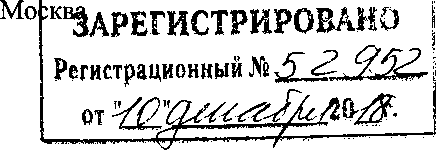 Москва
ЗАРЕГИСТРИРОВАНО
Регистрационный № 52952
от "10" декабря 2018.